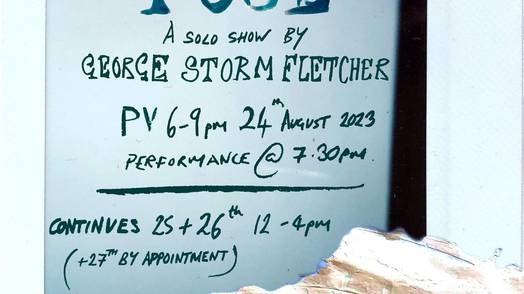 A SOLO SHOW BY
GEORGE STORM FLETCHER
PV 6-9pm 24th AUGUST 2023
PERFORMANCE @ 7.30pm.
CONTINUES 25 + 26th 12-4pm
(+27TH BY APPOINTMENT)